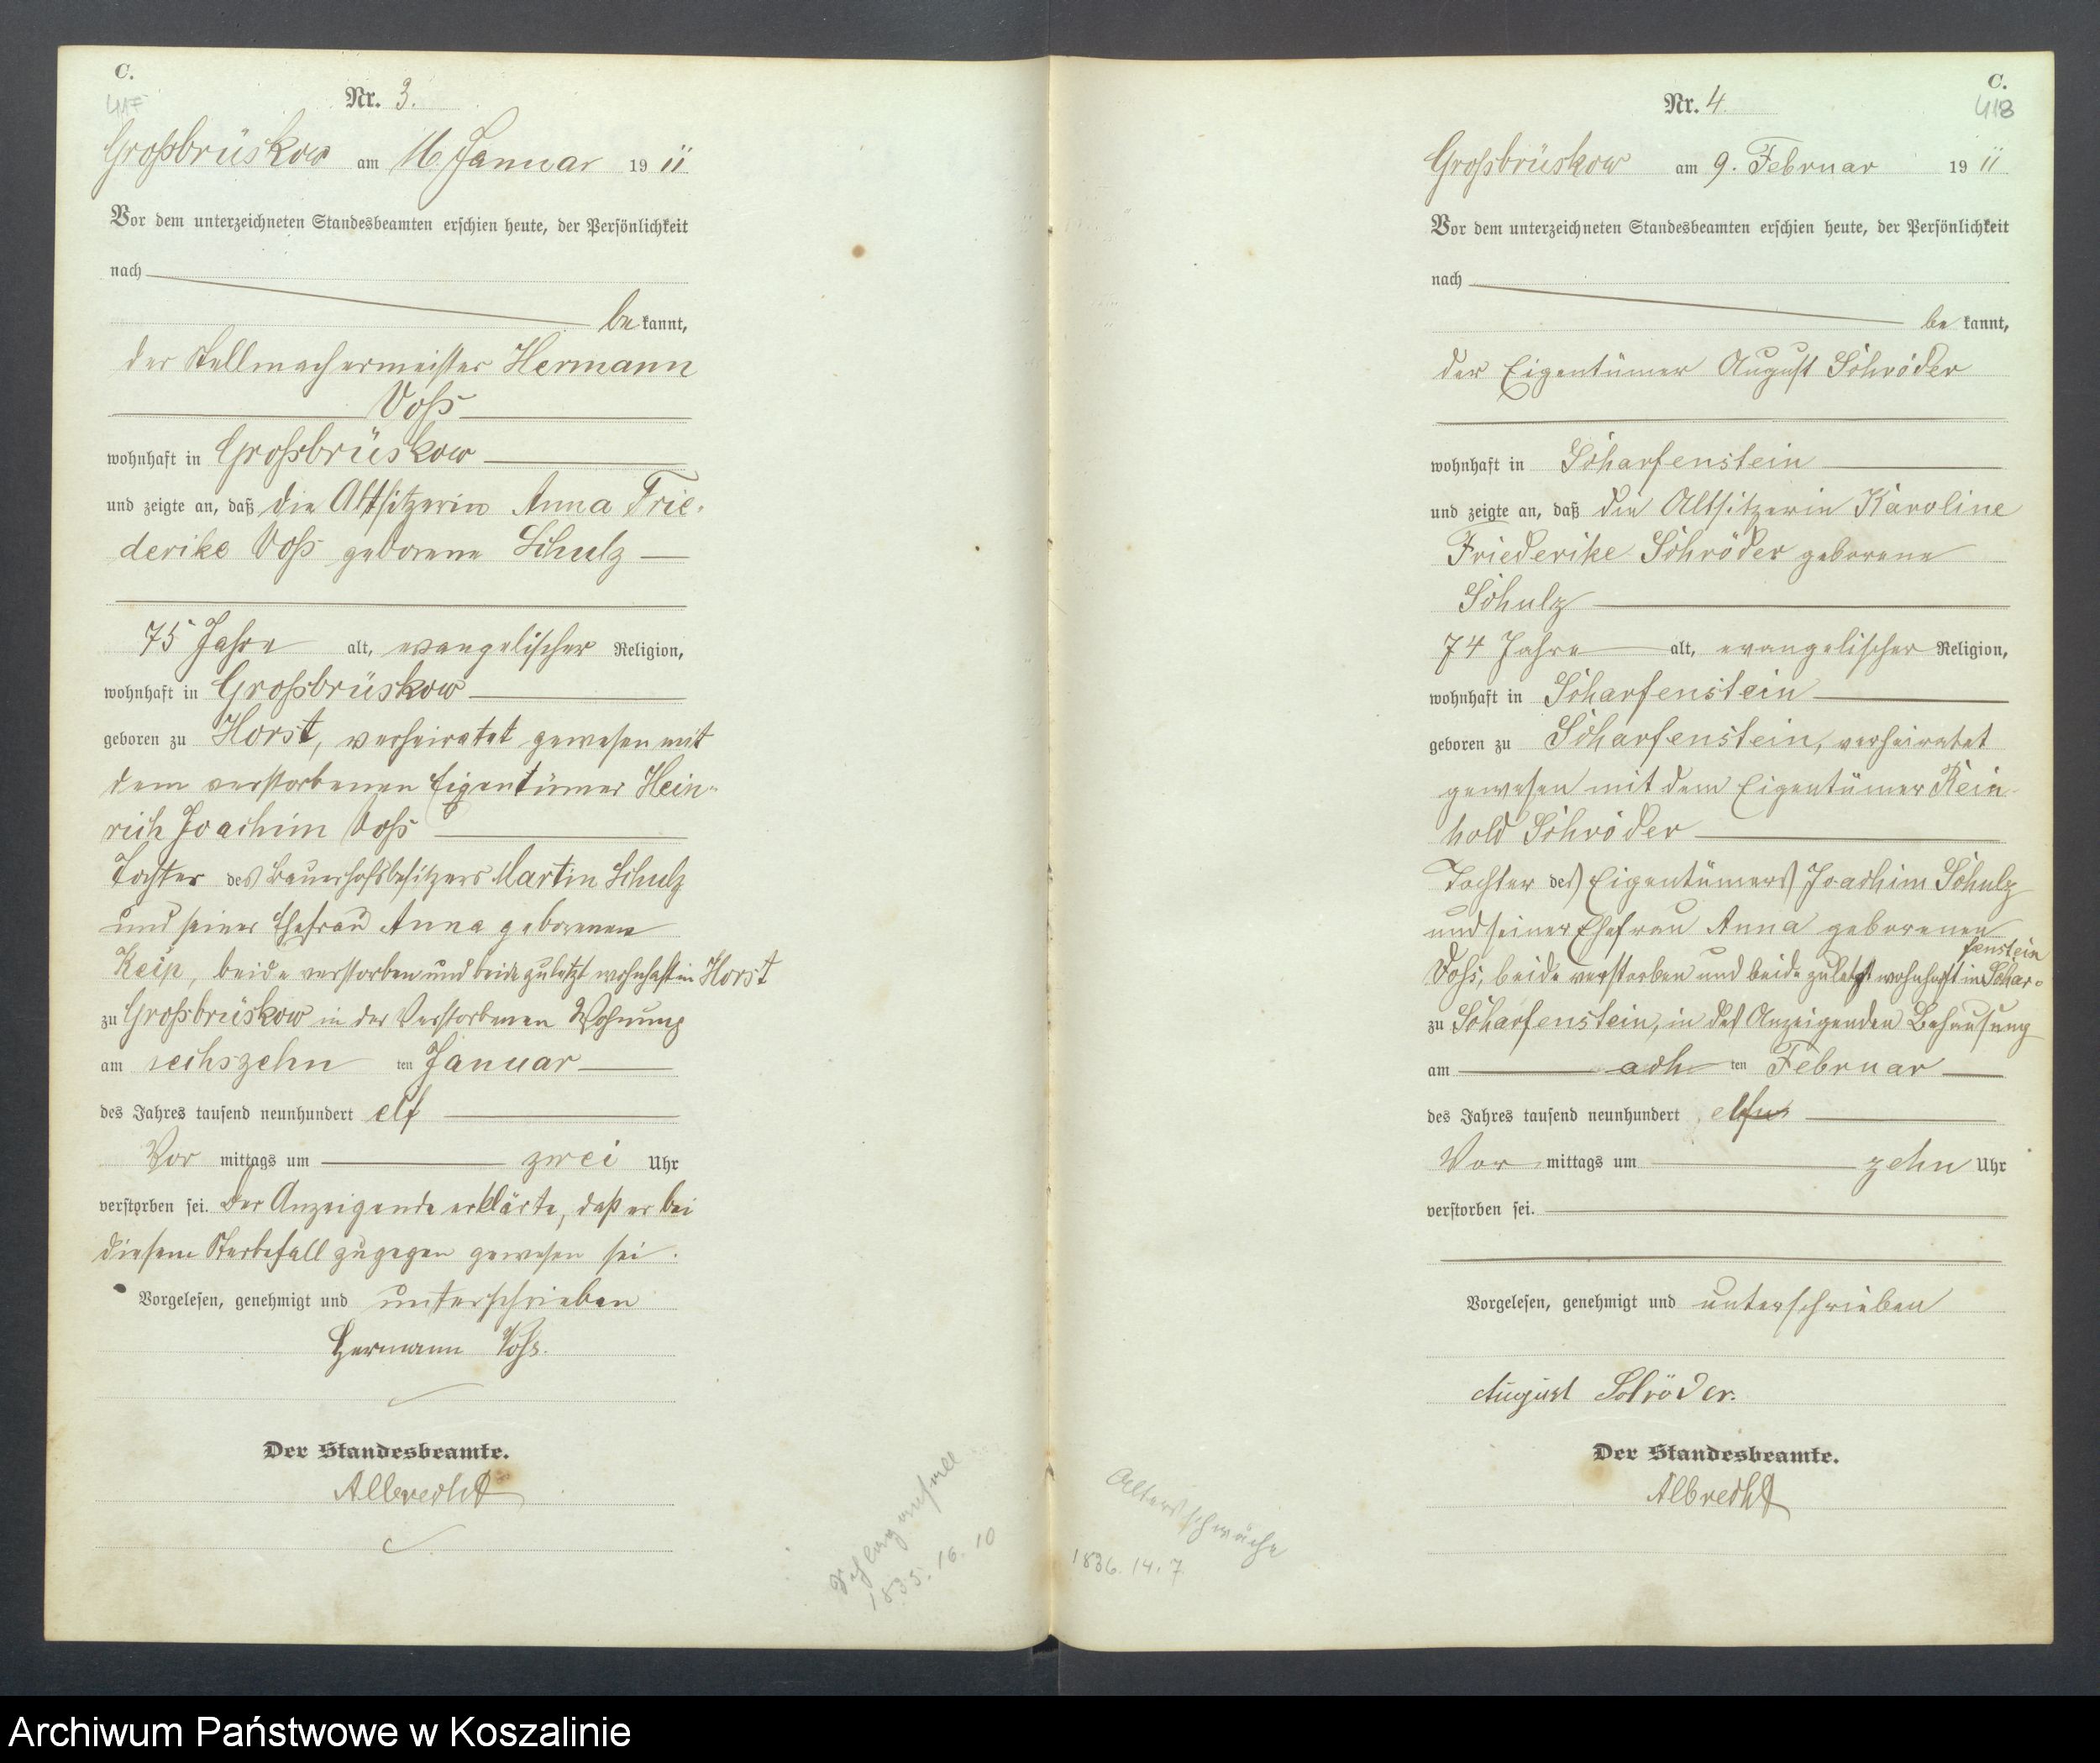 C.
417
Nr. 3.
Großbrüskow am 16. Januar 19 11
Vor dem unterzeichneten Standesbeamten erschien heute, der Persönlichkeit
nach
be kannt,
der Stellmachermeister Hermann
Voß
wohnhaft in Großbrüskow
und zeigte an, daß die Altsitzerin Anna Frie-
derike Voß geborene Schulz
75 Jahre alt, evangelischer Religion,
wohnhaft in Großbrüskow
geboren zu Horst, verheiratet gewesen mit
dem verstorbenen Eigentümer Hein-
rich Joachim Voß
Tochter des Bauerhofsbesitzers Martin Schulz
und seiner Ehefrau Anna geborenen
Keip, beide verstorben und beide zuletzt wohnhaft in Horst
zu Großbrüskow in der Verstorbenen Wohnung
am sechszehn ten Januar
des Jahres tausend neunhundert elf
Vor mittags um zwei Uhr
verstorben sei. Der Anzeigende erklärte, daß er bei
diesem Sterbefall zugegen gewesen sei.
Vorgelesen, genehmigt und unterschrieben
Hermann Voß.
Der Standesbeamte.
Albrecht
Schlaganfall
1835. 16. 10
C.
418
Nr. 4
Großbrüskow am 9. Februar 19 11
Vor dem unterzeichneten Standesbeamten erschien heute, der Persönlichkeit
nach
be kannt,
der Eigentümer August Schröder
wohnhaft in Scharfenstein
und zeigte an, daß die Altsitzerin Karoline
Friederike Schröder geborene
Schulz
74 Jahre alt, evangelischer Religion,
wohnhaft in Scharfenstein
geboren zu Scharfenstein, verheiratet
gewesen mit dem Eigentümer Rein-
hold Schröder
Tochter des Eigentümers Joachim Schulz
und seiner Ehefrau Anna geborenen
fenstein
Voß, beide verstorben und beide zuletzt wohnhaft in Schar-
zu Scharfenstein, in des Anzeigenden Behausung
am ach ten Februar
des Jahres tausend neunhundert elf
Vor mittags um zehn Uhr
verstorben sei.
Vorgelesen, genehmigt und unterschrieben
August Schröder.
Der Standesbeamte.
Albrecht
Altersschwäche
1836. 14. 7.
Archiwum Państwowe w Koszalinie